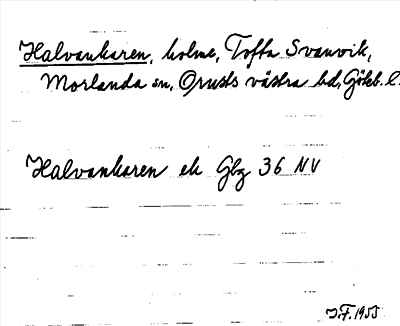 Halvankaren, holme, Tofta Svanvik,
Morlanda sn, Orusts västra hd, Göteb. l.
Halvankaren ek Gbg 36 NV
J.F. 1955